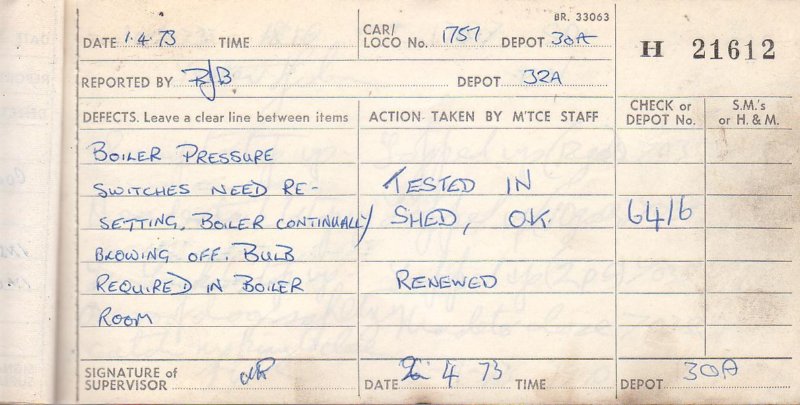 BR. 33063
DATE 1.4.73 TIME CAR/LOCO No. 1757 DEPOT 30A H 21612
REPORTED BY RJB DEPOT 32A
DEFECTS. Leave a clear line between items ACTION TAKEN BY M'TCE STAFF CHECK or DEPOT No. S.M.'s or H. & M.
BOILER PRESSURE
SWITCHES NEED RE- TESTED IN
SETTING. BOILER CONTINUALLY SHED, OK 6416
BLOWING OFF. BULB
REQUIRED IN BOILER RENEWED
ROOM
SIGNATURE of SUPERVISOR DATE 4 73 TIME DEPOT 30A